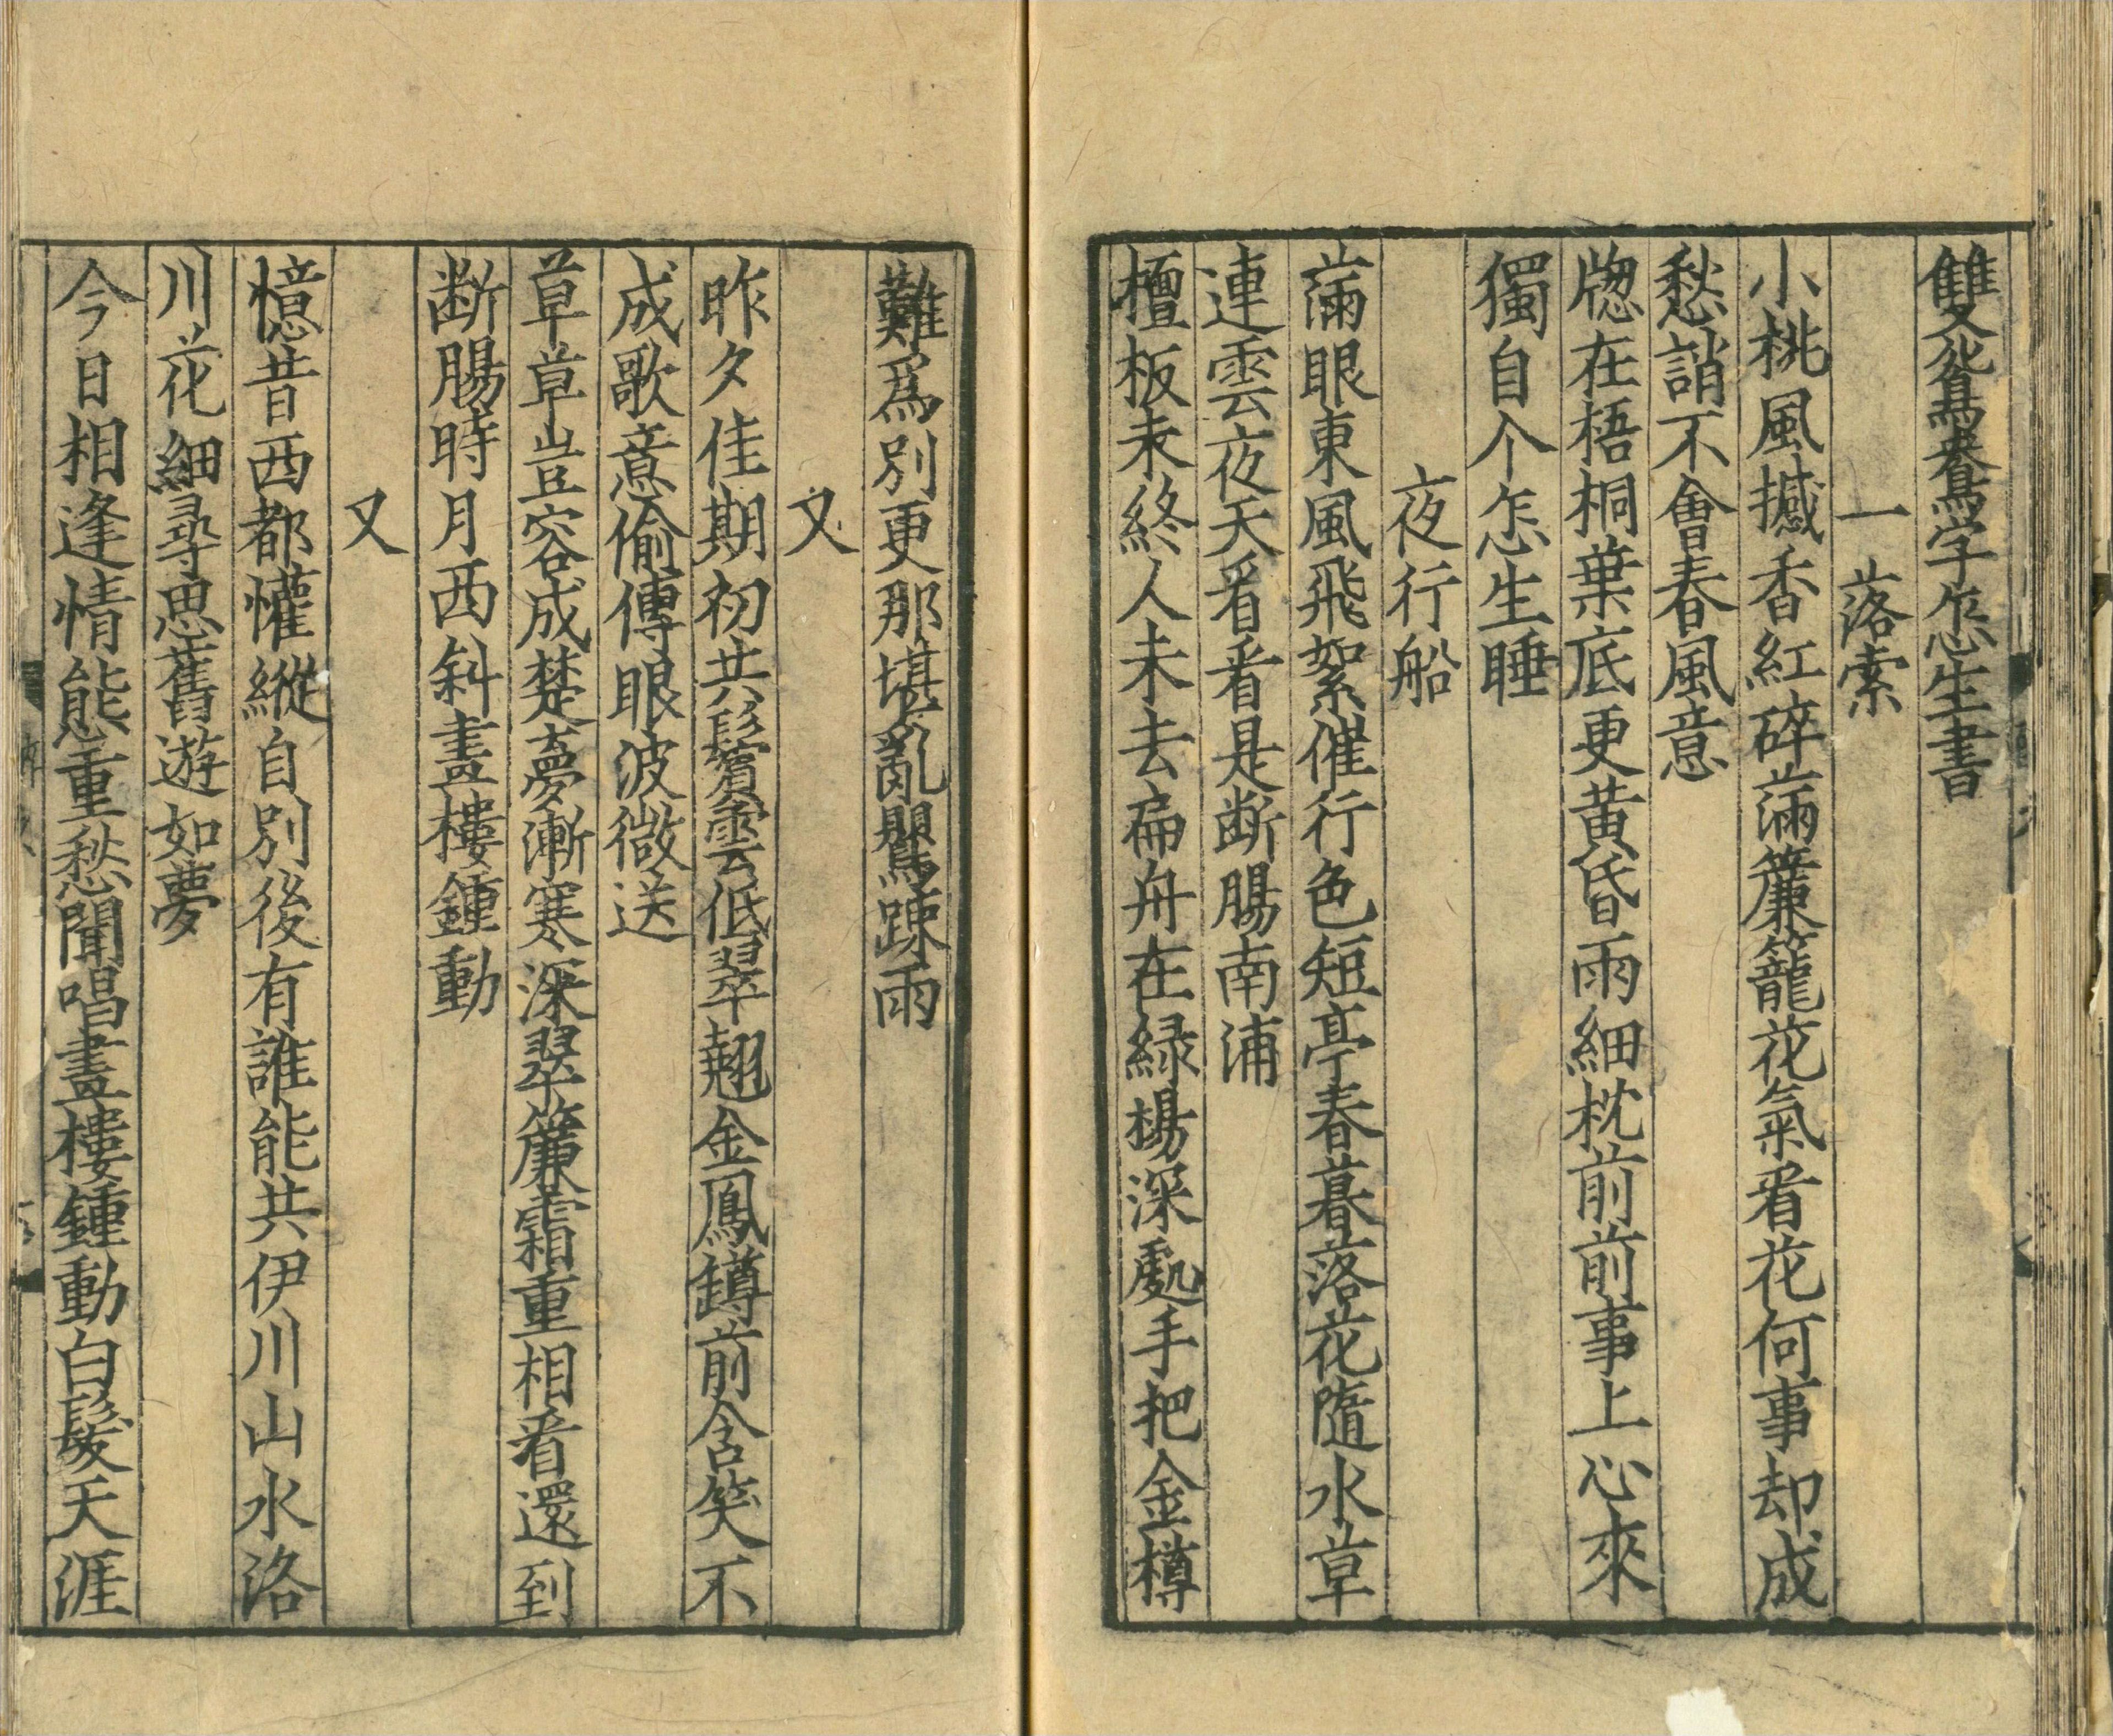 雙鴛鴦字怎生書
一落索
小桃風撼香紅碎滿簾籠花氣看花何事却成
愁誚不會春風意
窻在梧桐葉底更黃昏雨細枕前前事上心來
獨自个怎生睡
夜行船
滿眼東風飛絮催行色短亭春暮落花隨水草
連雲夜天看看是斷腸南浦
檀板未終人未去扁舟在緑楊深處手把金樽
難爲別更那堪亂鸎踈雨
又
昨夕佳期初共鬢雲低翠翹金鳳罇前含笑不
成歌意偷傳眼波微送
草草豈容成楚夢漸寒深翠簾霜重相看還到
斷腸時月西斜畫樓鍾動
又
憶昔西都懽縱自別後有誰能共伊川山水洛
川花細尋思舊遊如夢
今日相逢情態重愁聞唱畫樓鍾動白髮天涯